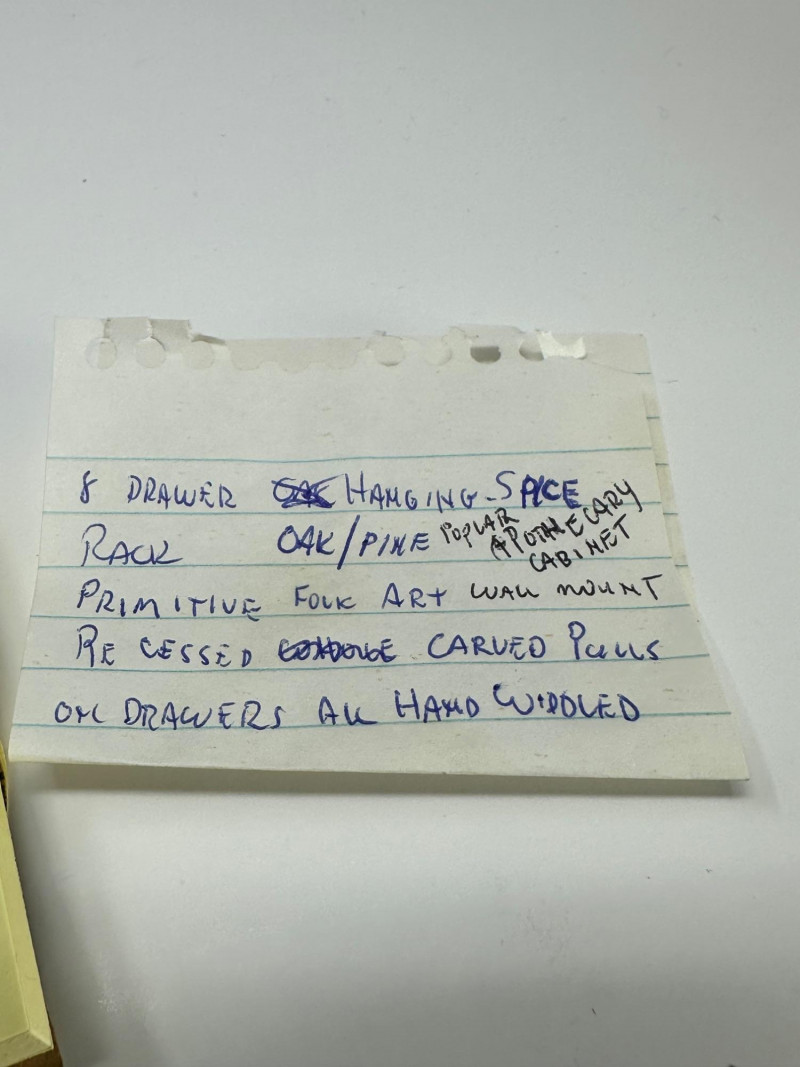 8 DRAWER HANGING SPICE
RACK OAK/PINE POPLAR APOTHECARY
CABINET
PRIMITIVE FOLK ART WALL MOUNT
RECESSED CARVED PULLS
ON DRAWERS ALL HAND WIDDLED